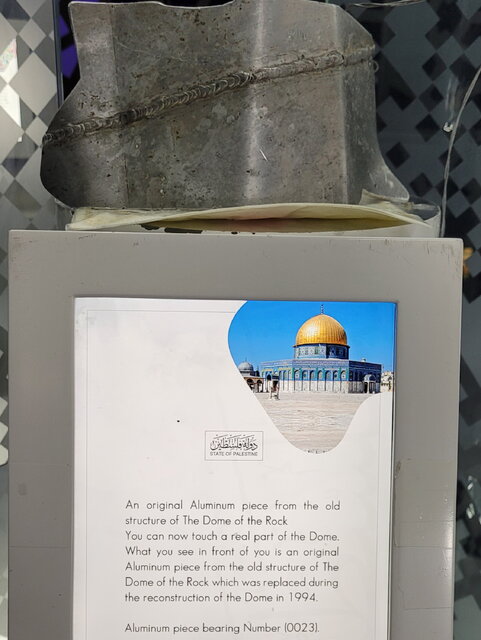 دولة فلسطين
STATE OF PALESTINE
An original Aluminum piece from the old
structure of The Dome of the Rock
You can now touch a real part of the Dome.
What you see in front of you is an original
Aluminum piece from the old structure of The
Dome of the Rock which was replaced during
the reconstruction of the Dome in 1994.
Aluminum piece bearing Number (0023).